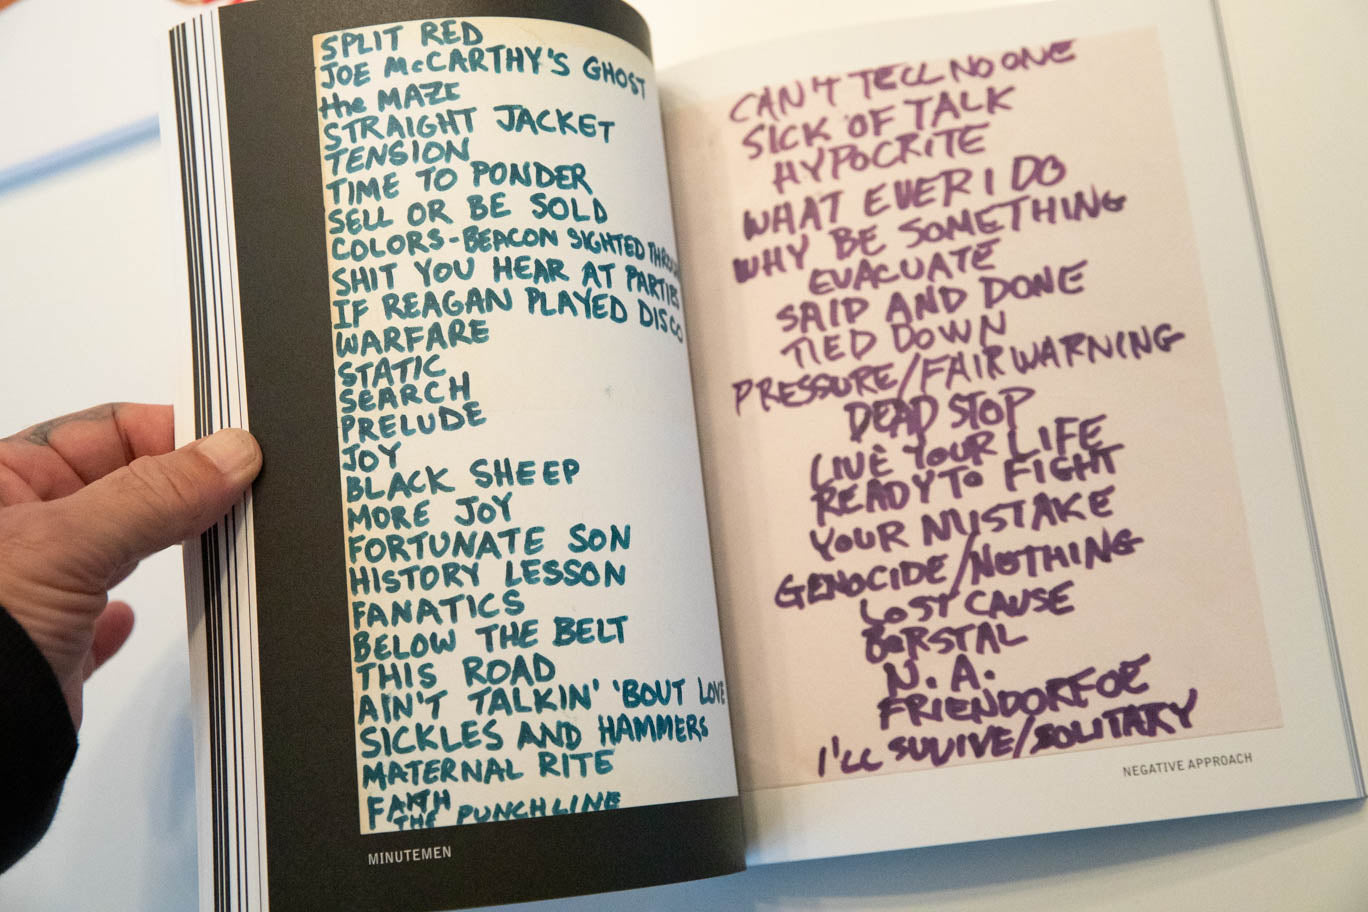 SPLIT RED
JOE McCARTHY'S GHOST
the MAZE
STRAIGHT JACKET
TENSION
TIME TO PONDER
SELL OR BE SOLD
COLORS-BEACON SIGHTED
SHIT YOU HEAR AT PARTIES
IF REAGAN PLAYED DISCO
WARFARE
STATIC
SEARCH
PRELUDE
JOY
BLACK SHEEP
MORE JOY
FORTUNATE SON
HISTORY LESSON
FANATICS
BELOW THE BELT
THIS ROAD
AIN'T TALKIN' 'BOUT LOVE
SICKLES AND HAMMERS
MATERNAL RITE
FAITH
THE PUNCHLINE
MINUTEMEN
CAN'T TELL NO ONE
SICK OF TALK
HYPOCRITE
WHAT EVER I DO
WHY BE SOMETHING
EVACUATE
SAID AND DONE
TIED DOWN
PRESSURE/FAIR WARNING
DEAD STOP
LIVE YOUR LIFE
READY TO FIGHT
YOUR MISTAKE
GENOCIDE/NOTHING
LOST CAUSE
BORSTAL
N. A.
FRIENDORFOE
I'LL SUVIVE/SOLITARY
NEGATIVE APPROACH